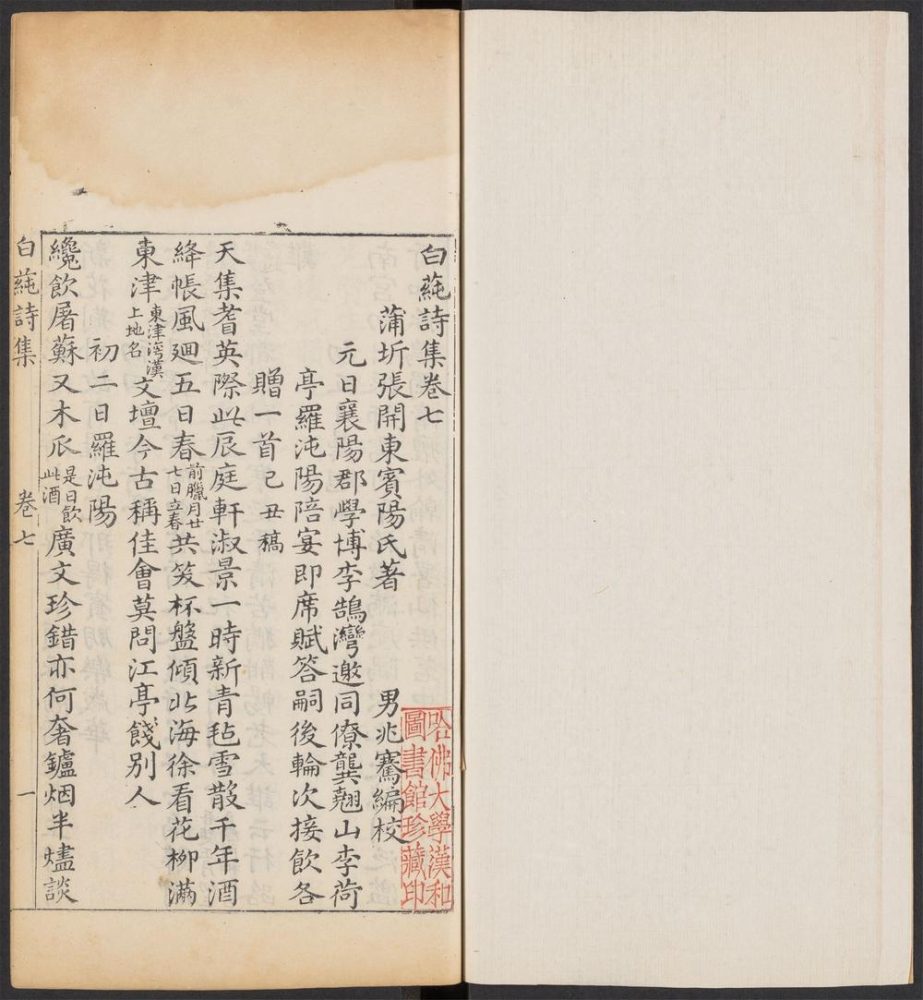 白蒓詩集卷七
蒲圻張開東賓陽氏著 男兆騫編校
元日襄陽郡學博李鵠灣邀同僚龔翹山李荷
亭羅沌陽陪宴即席賦答嗣後輪次接飲各
贈一首己丑稿
天集耆英際此辰庭軒淑景一時新青毡雪散千年酒
絳帳風廻五日春前臘月廿七日立春共笑杯盤傾北海徐看花柳滿
東津東津灣漢上地名文壇今古稱佳會莫問江亭餞別人
初二日羅沌陽
纔飲屠蘇又木瓜是日飲此酒廣文珍錯亦何奢鑪烟半燼談
白蒓詩集 卷七 一
哈佛大學漢和
圖書館珍藏印